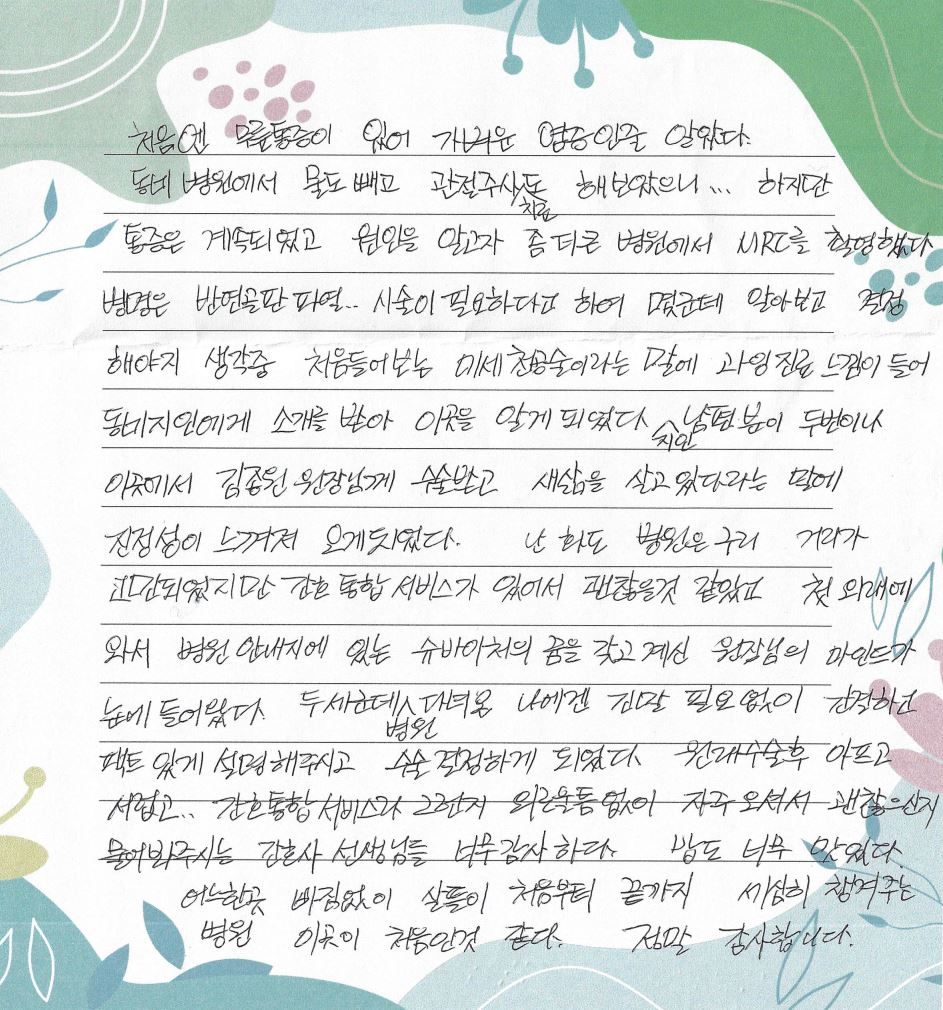 처음엔 무릎통증이 있어 가벼운 염증인줄 알았다.
동네 병원에서 물도 빼고 관절주사치료도 해보았으나... 하지만
통증은 계속되었고 원인을 알고자 좀 더 큰 병원에서 MRI를 촬영했다
병명은 반연골판 파열.. 시술이 필요하다고 하여 몇군데 알아보고 결정
해야지 생각중 처음들어보는 미세천공술이라는 말에 과잉진료 느낌이 들어
동네지인에게 소개를 받아 이곳을 알게 되었다 지인 남편분이 두번이나
이곳에서 김종원 원장님께 수술받고 새삶을 살고 있다라는 말에
진정성이 느껴져 오게되었다. 난 화도 병원은 구리 거리가
고민되었지만 간호 통합 서비스가 있어서 괜찮을것 같았고 첫 외래에
와서 병원 안내지에 있는 슈바이처의 꿈을 갖고 계신 원장님의 마인드가
눈에 들어왔다. 두세군데 병원 다녀온 나에겐 긴말 필요없이 간적하고
팩트 있게 설명해주시고 수술 결정하게 되었다. 원래수술후 아프고
서럽고.. 간호통합 서비스라 그런지 외로운틈 없이 자주 오셔서 괜찮은신지
물어봐주시는 간호사 선생님들 너무감사하다. 밥도 너무 맛있다.
어느한곳 빠짐없이 살뜰이 처음부터 끝까지 세심히 챙겨주는
병원 이곳이 처음인것 같다. 정말 감사합니다.